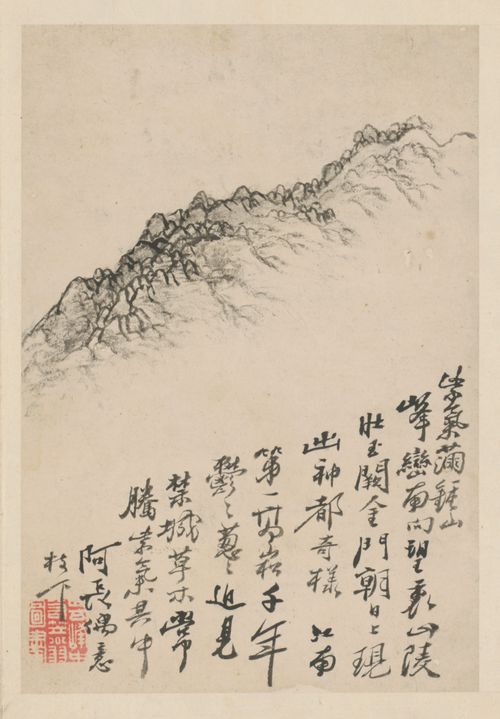 紫氣滿鍾山
峰巒南向望裏山陵
壯玉闕金門朝日上現
出神都奇樣江南
第一高崧千年
鬱〻蔥〻 見
禁城草木常
騰紫氣其中
阿長偶意
枝下